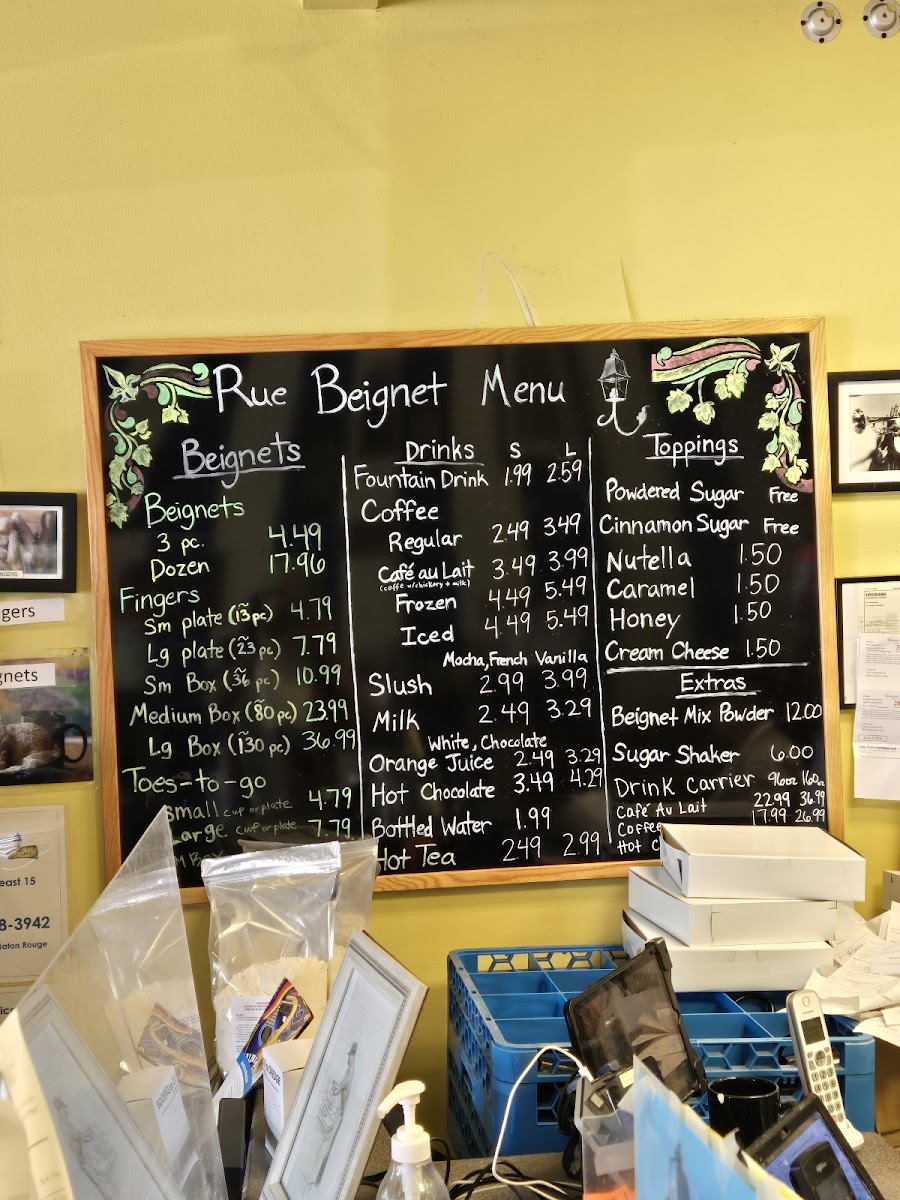 Rue Beignet Menu
Beignets
Beignets
3 pc. 4.49
Dozen 17.96
Fingers
Sm plate (~15 pc) 4.79
Lg plate (~23 pc) 7.79
Sm Box (~36 pc) 10.99
Medium Box (~80 pc) 23.99
Lg Box (~130 pc) 36.99
Toes-to-go
Small cup or plate 4.79
Large cup or plate 7.79
Drinks S L
Fountain Drink 1.99 2.59
Coffee
Regular 2.49 3.49
Café au Lait 3.49 3.99
(coffee w/chickery + milk)
Frozen 4.49 5.49
Iced 4.49 5.49
Mocha, French Vanilla
Slush 2.99 3.99
Milk 2.49 3.29
White, Chocolate
Orange Juice 2.49 3.29
Hot Chocolate 3.49 4.29
Bottled Water 1.99
Hot Tea 2.49 2.99
Toppings
Powdered Sugar Free
Cinnamon Sugar Free
Nutella 1.50
Caramel 1.50
Honey 1.50
Cream Cheese 1.50
Extras
Beignet Mix Powder 12.00
Sugar Shaker 6.00
Drink Carrier 96oz 160oz
Café Au Lait 22.99 36.99
Coffee 17.99 26.99
Hot C
NGERS
gers
gnets
east 15
8-3942
Baton Rouge
LOUISIANA